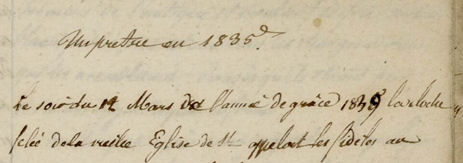 Un pretre en 1835.
Le soir du 12 Mars de l'année de grâce 1835 la cloche
felée de la vieille Eglise de St. appeloit les fidèles au